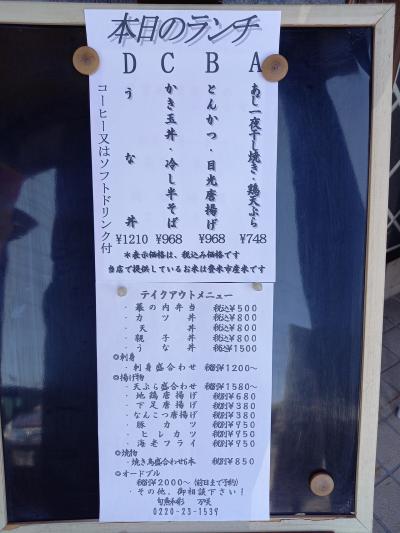 本日のランチ
A あじ一夜干し焼き・鶏天ぷら ¥748
B とんかつ・目光唐揚げ ¥968
C かき玉丼・冷し半そば ¥968
D うな丼 ¥1210
コーヒー又はソフトドリンク付
*表示価格は、税込み価格です
当店で提供しているお米は登米市産米です
テイクアウトメニュー
・幕の内弁当 税込¥500
・カツ丼 税込¥800
・天丼 税込¥800
・親子丼 税込¥800
・うな丼 税込¥1500
◎刺身
・刺身盛合わせ 税別¥1200〜
◎揚げ物
・天ぷら盛合わせ 税別¥1580〜
・地鶏唐揚げ 税別¥680
・下足唐揚げ 税別¥380
・なんこつ唐揚げ 税別¥380
・豚カツ 税別¥750
・ヒレカツ 税別¥750
・海老フライ 税別¥750
◎焼物
・焼き鳥盛合わせ6本 税別¥850
◎オードブル
税別¥2000〜(前日まで予約)
・その他、御相談下さい!
0220-23-1539